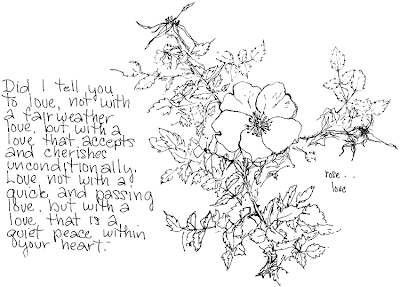 Did I tell you
to love, not with
a fairweather
love, but with a
love that accepts
and cherishes
unconditionally.
Love not with a
quick and passing
love, but with a
love that is a
quiet peace within
your heart.
rose...
love